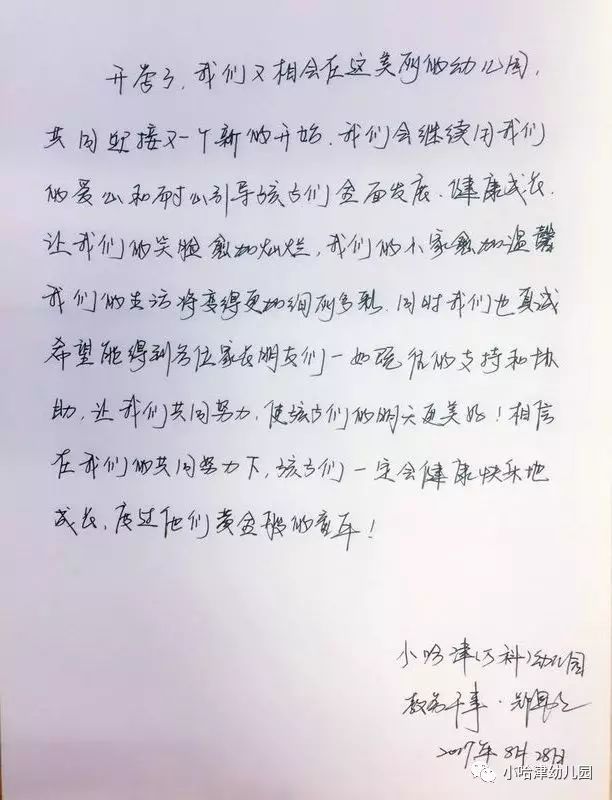 开学了,我们又相会在这美丽的幼儿园,
共同迎接又一个新的开始.我们会继续用我们
的爱心和耐心引导孩子们全面发展、健康成长.
让我们的笑脸愈加灿烂,我们的小家愈加温馨
我们的生活将变得更加绚丽多彩.同时我们也真诚
希望能得到各位家长朋友们一如既往的支持和协
助,让我们共同努力,使孩子们的明天更美好!相信
在我们的共同努力下,孩子们一定会健康快乐地
成长,度过他们黄金般的童年!
小哈津(万科)幼儿园
教务干事·郑
2017年8月28日
小哈津幼儿园